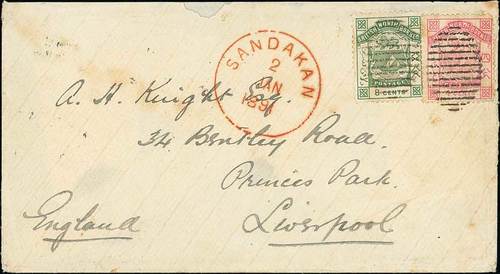 SANDAKAN
2
JAN
1891
BRITISH NORTH BORNEO
POSTAGE
8 CENTS
A. H. Knight Esq.
34 Bentley Road.
Princes Park.
Liverpool
England